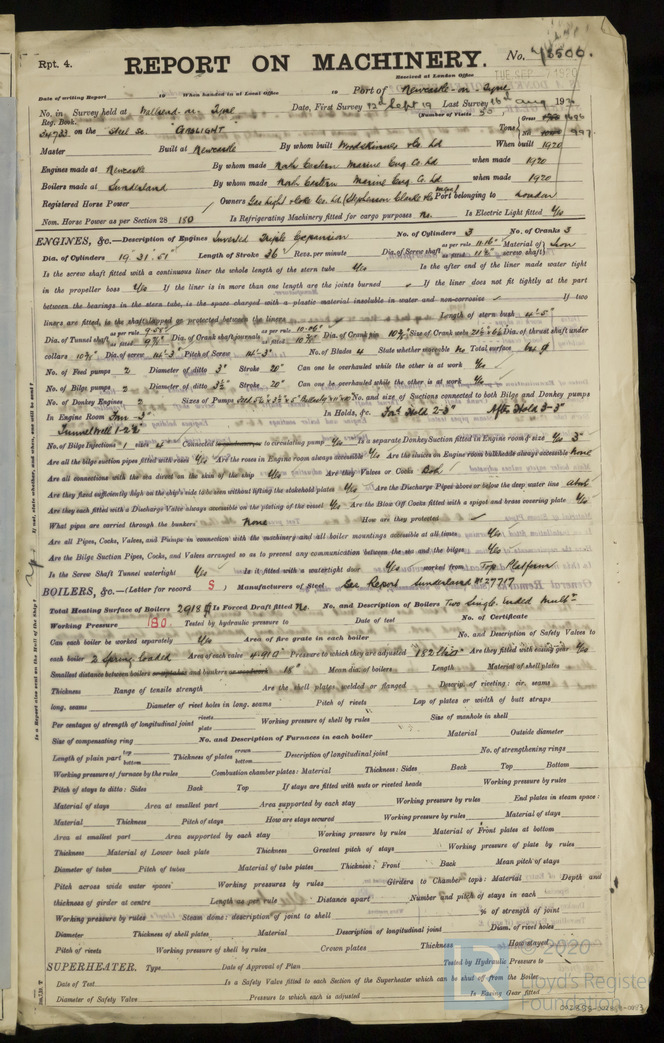 Rpt. 4.
REPORT ON MACHINERY.
No. 48500.
Received at London Office
TUE SEP 1920
Date of writing Report 19 When handed in at Local Office 19 Port of Newcastle-on-Tyne
No. in Survey held at Wallsend-on-Tyne Date, First Survey 12th Sept 19 Last Survey 16th Aug 1920
Reg. Book. (Number of Visits 55
34733 on the Steel Sc. "GASLIGHT" Tons Gross Net
Master Built at Newcastle By whom built Wood Skinner & Co Ld When built 1920
Engines made at Newcastle By whom made North Eastern Marine Eng. Co Ld when made 1920
Boilers made at Sunderland By whom made North Eastern Marine Eng. Co Ld when made 1920
Registered Horse Power Owners Gas Light & Coke Co. Ld (Stephenson Clarke & Co Port belonging to London
Nom. Horse Power as per Section 28 180 Is Refrigerating Machinery fitted for cargo purposes No. Is Electric Light fitted Yes
ENGINES, &c.—Description of Engines Inverted Triple Expansion No. of Cylinders 3 No. of Cranks 3
Dia. of Cylinders 19" 31" 51" Length of Stroke 36 Revs. per minute Dia. of Screw shaft as per rule 11.16" as fitted Material of screw shaft Iron
Is the screw shaft fitted with a continuous liner the whole length of the stern tube Yes Is the after end of the liner made water tight
in the propeller boss Yes If the liner is in more than one length are the joints burned If the liner does not fit tightly at the part
between the bearings in the stern tube, is the space charged with a plastic material insoluble in water and non-corrosive If two
liners are fitted, is the shaft lapped or protected between the liners Length of stern bush 4'-5"
Dia. of Tunnel shaft as per rule 9.58" as fitted Dia. of Crank shaft journals as per rule 10.06" as fitted Dia. of Crank pin Size of Crank webs Dia. of thrust shaft under
collars Dia. of screw 14'-3" Pitch of Screw 14'-3" No. of Blades 4 State whether moveable No Total surface
No. of Feed pumps 2 Diameter of ditto 3" Stroke 20" Can one be overhauled while the other is at work Yes
No. of Bilge pumps 2 Diameter of ditto 3½" Stroke 20" Can one be overhauled while the other is at work Yes
No. of Donkey Engines 2 Sizes of Pumps No. and size of Suctions connected to both Bilge and Donkey pumps
In Engine Room 3" In Holds, &c. For'd Hold 2-3" After Hold 3-3"
Tunnel Well 1-2½"
No. of Bilge Injections 1 sizes Connected to circulating pump Yes Is a separate Donkey Suction fitted in Engine room & size Yes 3"
Are all the bilge suction pipes fitted with roses Yes Are the roses in Engine room always accessible Yes Are the sluices on Engine room bulkheads always accessible None
Are all connections with the sea direct on the skin of the ship Yes Are they Valves or Cocks Both
Are they fixed sufficiently high on the ship's side to be seen without lifting the stokehold plates Yes Are the Discharge Pipes above or below the deep water line Above
Are they each fitted with a Discharge Valve always accessible on the plating of the vessel Yes Are the Blow Off Cocks fitted with a spigot and brass covering plate Yes
What pipes are carried through the bunkers None How are they protected
Are all Pipes, Cocks, Valves, and Pumps in connection with the machinery and all boiler mountings accessible at all times Yes
Are the Bilge Suction Pipes, Cocks, and Valves arranged so as to prevent any communication between the sea and the bilges Yes
Is the Screw Shaft Tunnel watertight Yes Is it fitted with a watertight door Yes worked from Top Platform
BOILERS, &c.—(Letter for record S) Manufacturers of Steel See Report Sunderland No 27717
Total Heating Surface of Boilers 2918 Is Forced Draft fitted No. No. and Description of Boilers Two Single ended Mult.
Working Pressure 180 Tested by hydraulic pressure to Date of test No. of Certificate
Can each boiler be worked separately Yes Area of fire grate in each boiler No. and Description of Safety Valves to
each boiler 2 Spring loaded Area of each valve 4.91 Pressure to which they are adjusted 182 lbs Are they fitted with easing gear Yes
Smallest distance between boilers or uptakes and bunkers or woodwork 18" Mean dia. of boilers Length Material of shell plates
Thickness Range of tensile strength Are the shell plates welded or flanged Descrip. of riveting: cir. seams
long. seams Diameter of rivet holes in long. seams Pitch of rivets Lap of plates or width of butt straps
Per centages of strength of longitudinal joint rivets plate Working pressure of shell by rules Size of manhole in shell
Size of compensating ring No. and Description of Furnaces in each boiler Material Outside diameter
Length of plain part top bottom Thickness of plates crown bottom Description of longitudinal joint No. of strengthening rings
Working pressure of furnace by the rules Combustion chamber plates: Material Thickness: Sides Back Top Bottom
Pitch of stays to ditto: Sides Back Top If stays are fitted with nuts or riveted heads Working pressure by rules
Material of stays Area at smallest part Area supported by each stay Working pressure by rules End plates in steam space:
Material Thickness Pitch of stays How are stays secured Working pressure by rules Material of stays
Area at smallest part Area supported by each stay Working pressure by rules Material of Front plates at bottom
Thickness Material of Lower back plate Thickness Greatest pitch of stays Working pressure of plate by rules
Diameter of tubes Pitch of tubes Material of tube plates Thickness: Front Back Mean pitch of stays
Pitch across wide water spaces Working pressures by rules Girders to Chamber tops: Material Depth and
thickness of girder at centre Length as per rule Distance apart Number and pitch of stays in each
Working pressure by rules Steam dome: description of joint to shell % of strength of joint
Diameter Thickness of shell plates Material Description of longitudinal joint Diam. of rivet holes
Pitch of rivets Working pressure of shell by rules Crown plates Thickness How stayed
SUPERHEATER. Type Date of Approval of Plan Tested by Hydraulic Pressure to
Date of Test Is a Safety Valve fitted to each Section of the Superheater which can be shut off from the Boiler
Diameter of Safety Valve Pressure to which each is adjusted Is Easing Gear fitted
© 2020
Lloyd's Register
Foundation